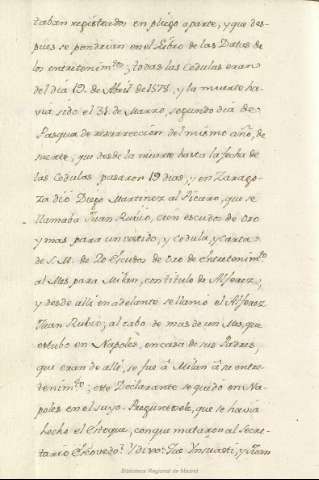 taban registrados en pliego aparte, y que des-
pues se pondrian en el Libro de las Datas de
los entretenim.tos; todas las Cedulas eran
del dia 19. de Abril de 1578. y la muerte ha-
via sido el 31. de Marzo, segundo dia de
Pasqua de resurrección del mismo año, de
suerte, que desde la muerte hasta la fecha de
las Cedulas pasaron 19 dias, y en Zarago-
za dio Diego Martinez al Picaro, que se
llamaba Juan Rubio, cien escudos de Oro
y mas, para un vestido, y cedula, y Carta
de S. M. de 20 Escudos de Oro de Entretenim.to
al Mes, para Milan, con titulo de Alferez;
y desde alli en adelante se llamó el Alferez
Juan Rubio; al cabo de mas de un Mes, que
estubo en Napoles, en casa de sus Padres,
que eran de alli, se fue á Milan á su entre-
tenim.to; este Declarante se quedó en Na-
poles en el suyo. Preguntele, que se havia
hecho el Estoque, con que mataron al Secre-
tario Escovedo? Y dixo: Que Ynsausti, y Juan
Biblioteca Regional de Madrid